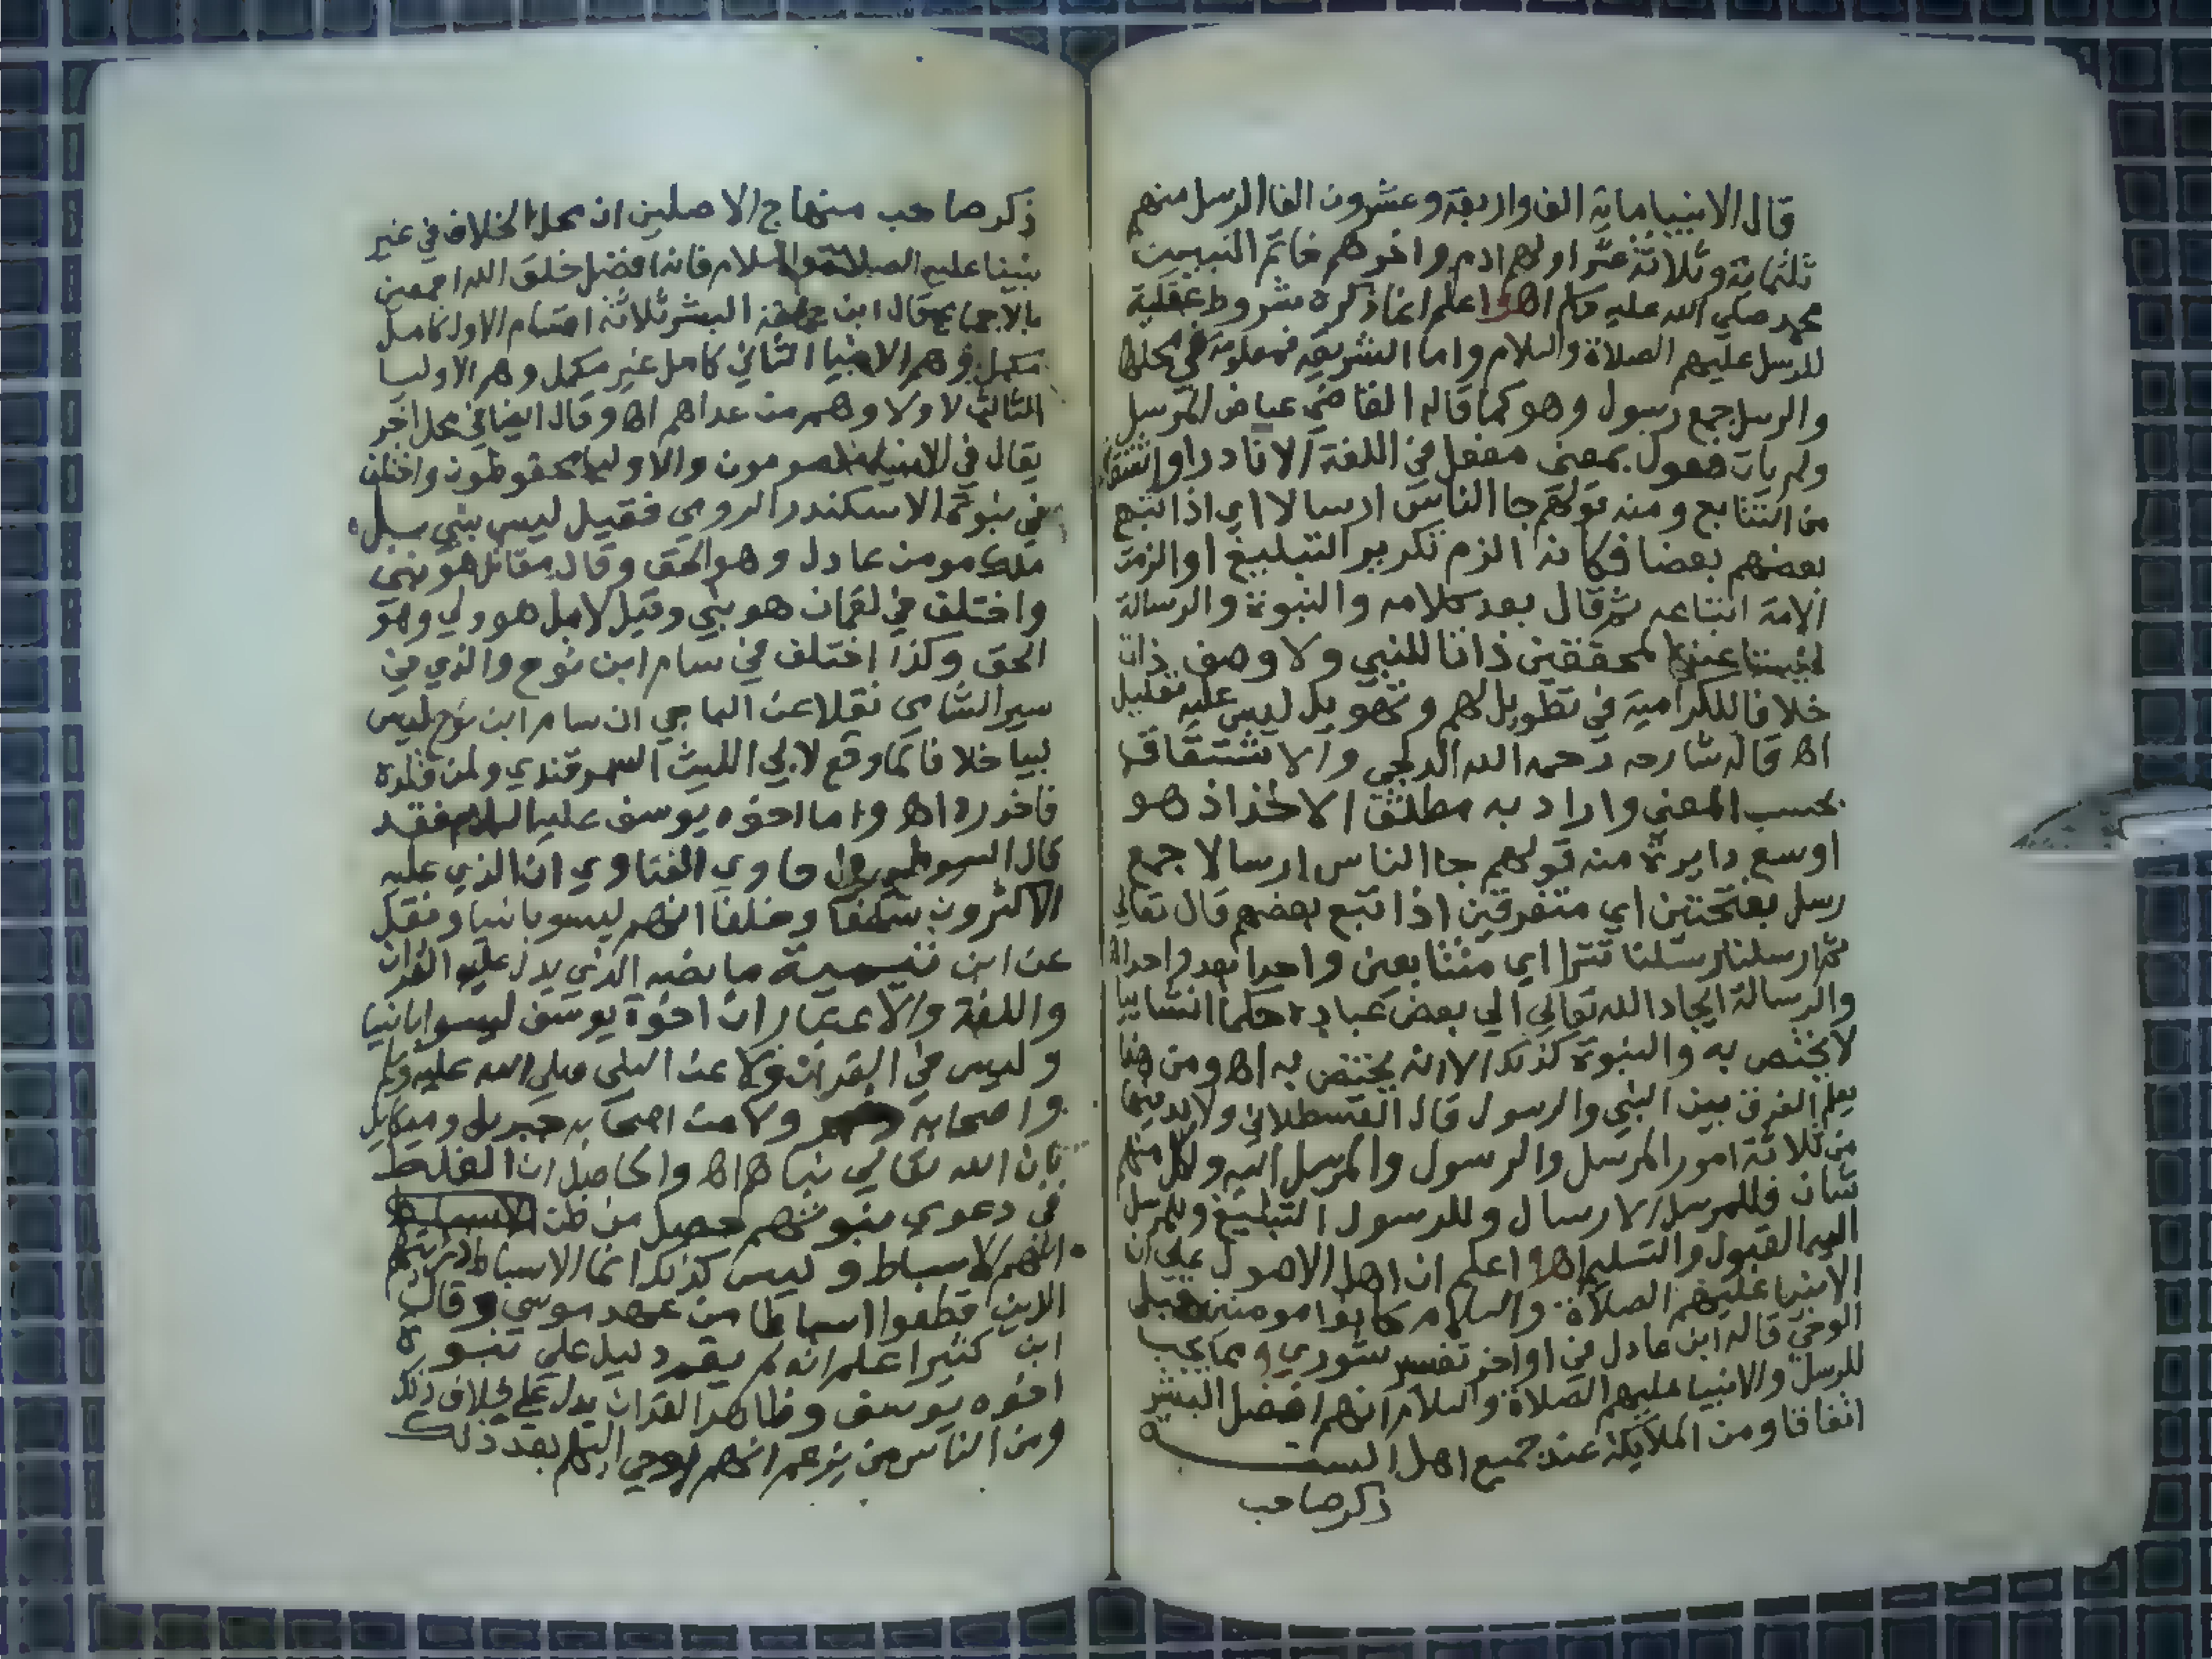 قال الانبيا ماية الف واربعة وعشرون الفا الرسل منهم
ثلثماية وثلاثة عشر اولهم ادم واخرهم خاتم النبيين
محمد صلي الله عليه وسلم اهـ واعلم انما ذكره شروط عقلية
للرسل عليهم الصلاة والسلام واما الشرعية فمعلومة في محلها
والرسل جمع رسول وهو كما قاله القاضي عياض المرسل
ولم يات فعول بمعني مفعل في اللغة الا نادرا واشتقا
من التتابع ومنه قولهم جا الناس ارسالا اي اذا تبع
بعضهم بعضا فكانه الزم تكرير التبليغ او الزمت
الامة اتباعه ثم قال بعد كلامه والنبوة والرسالة
ليستا عند المحققين ذاتا للنبي ولا وصف ذات
خلافا للكرامية في تطويل لهم وتهويل ليس عليه تعليل
اهـ قاله شارحه رحمه الله الدلجي والاشتقاق
بحسب المعني واراد به مطلق الاخذ اذ هو
اوسع دايرة منه قولهم جا الناس ارسالا جمع
رسل بفتحتين اي متفرقين اذا تبع بعضهم قال تعالي
ثم ارسلنا رسلنا تترا اي متتابعين واحدا بعد واحد اهـ
والرسالة ايجاد الله تعالي الي بعض عباده حكما انشاييا
لا يختص به والنبوة كذلك الا انه يختص به اهـ ومن هنا
يعلم الفرق بين النبي والرسول قال القسطلاني ولابد فيها
من ثلاثة امور المرسل والرسول والمرسل اليه ولكل منهم
شان فللمرسل الارسال وللرسول التبليغ وللمرسل
اليه القبول والتسليم اهـ واعلم ان اهل الاصول علي ان
الانبيا عليهم الصلاة والسلام كانوا مومنين قبل
الوحي قاله ابن عادل في اواخر تفسير شوري ومما يجب
للرسل والانبيا عليهم الصلاة والسلام انهم افضل البشر
اتفاقا ومن الملايكة عند جميع اهل السنة
ذكر صاحب
ذكر صاحب منهاج الاصلين ان محل الخلاف في غير
نبينا عليه الصلاة والسلام فانه افضل خلق الله اجمعين
بالاجماع وقال ابن البشر ثلاثة اقسام الاول كامل
مكمل وهم الانبيا الثاني كامل غير مكمل وهم الاوليا
الثالث لا ولا وهم من عداهم اهـ وقال ايضا في محل اخر
يقال في الانبيا معصومون والاوليا محفوظون واختلف
في نبوة الاسكندر الرومي فقيل ليس بنبي بل
ملك مومن عادل وهو الحق وقال مقاتل هو نبي
واختلف في لقمان هو نبي وقيل لا بل هو ولي وهو
الحق وكذا اختلف في سام ابن نوح والذي في
سير الشامي نقلا عن الباجي ان سام ابن نوح ليس
نبيا خلافا لما وقع لابي الليث السمرقندي ولمن قلده
فاحذره اهـ واما اخوه يوسف عليه السلام فقد
قال السيوطي في حاوي الفتاوي ان الذي عليه
الاكثرون سلفا وخلفا انهم ليسو بانبيا ونقل
عن ابن تيمية ما نصه الذي يدل عليه القران
واللغة والاعتبار ان اخوة يوسف ليسوا بانبيا
وليس في القران ولا عن النبي صلي الله عليه وسلم
ولا من اصحابه جبريل وميكايل
بان الله تعالي نباهم اهـ والحاصل ان الغلط
في دعوي نبوتهم حصل من ظن الاسباط
انهم الاسباط وليس كذلك انما الاسباط ذريتهم
الذين قطعوا اسباطا من عهد موسي وقال
ابن كثير اعلم انه لم يقم دليل علي نبوة
اخوه يوسف وظاهر القران يدل علي خلاف ذلك
ومن الناس من يزعم انهم اوحي اليهم بعد ذلك